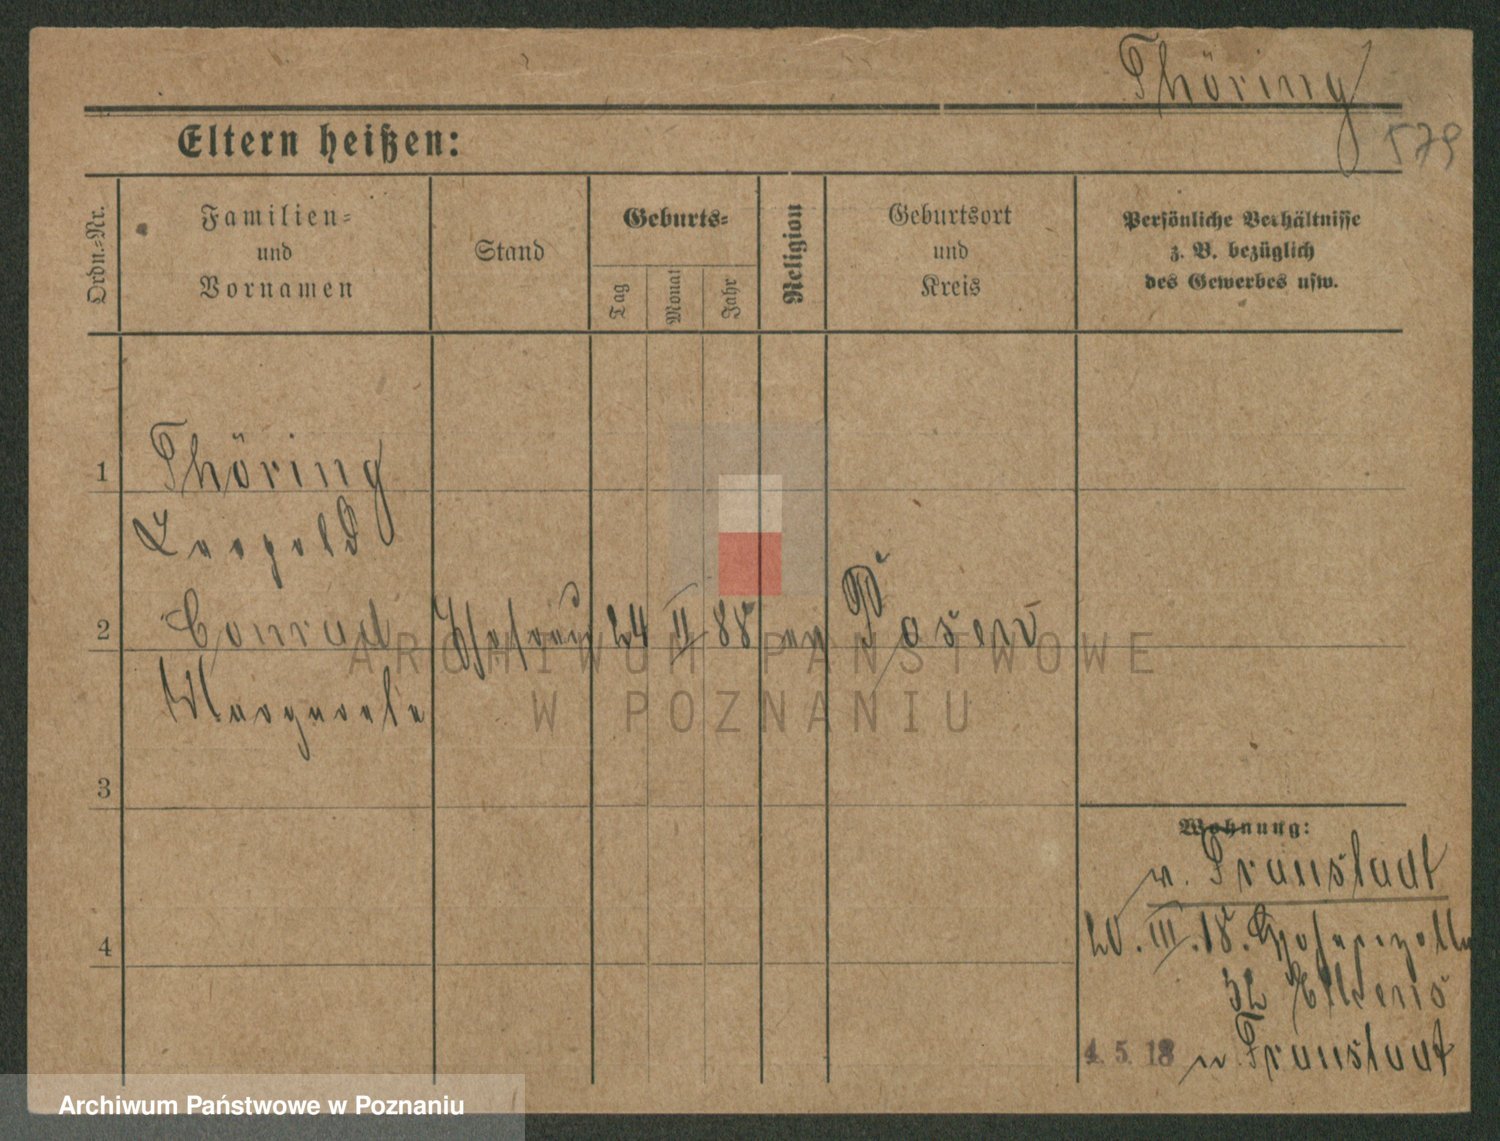 Thöring
579
Eltern heißen:
Ordn.=Nr.
Familien=
und
Vornamen
Stand
Geburts=
Tag
Monat
Jahr
Religion
Geburtsort
und
Kreis
Persönliche Verhältnisse
z. B. bezüglich
des Gewerbes usw.
1
Thöring
Leopold
2
Conrad
24 II 88 ev Posen
Margarete
3
4
Wohnung:
v. Fraustadt
20. III. 18. Hohenzoll
32 Eltern
4. 5. 18 n Fraustadt
ARCHIWUM PAŃSTWOWE
W POZNANIU
Archiwum Państwowe w Poznaniu